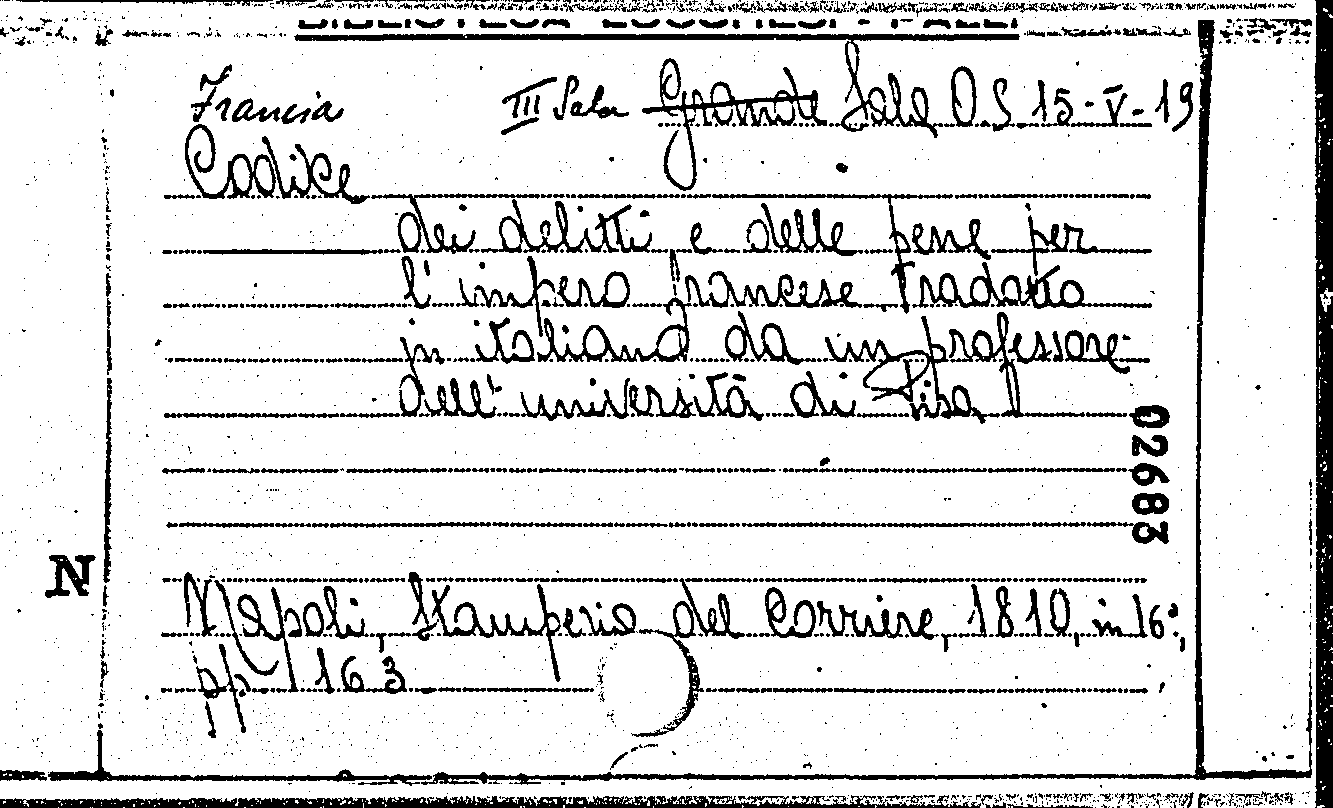 Francia III Sala Grande Sala O.S 15-V-19
Codice
dei delitti e delle pene per
l'impero francese tradotto
in italiano da un professore
dell'università di Pisa
02683
N
Napoli, Stamperia del Corriere, 1810, in 16°,
pp. 163